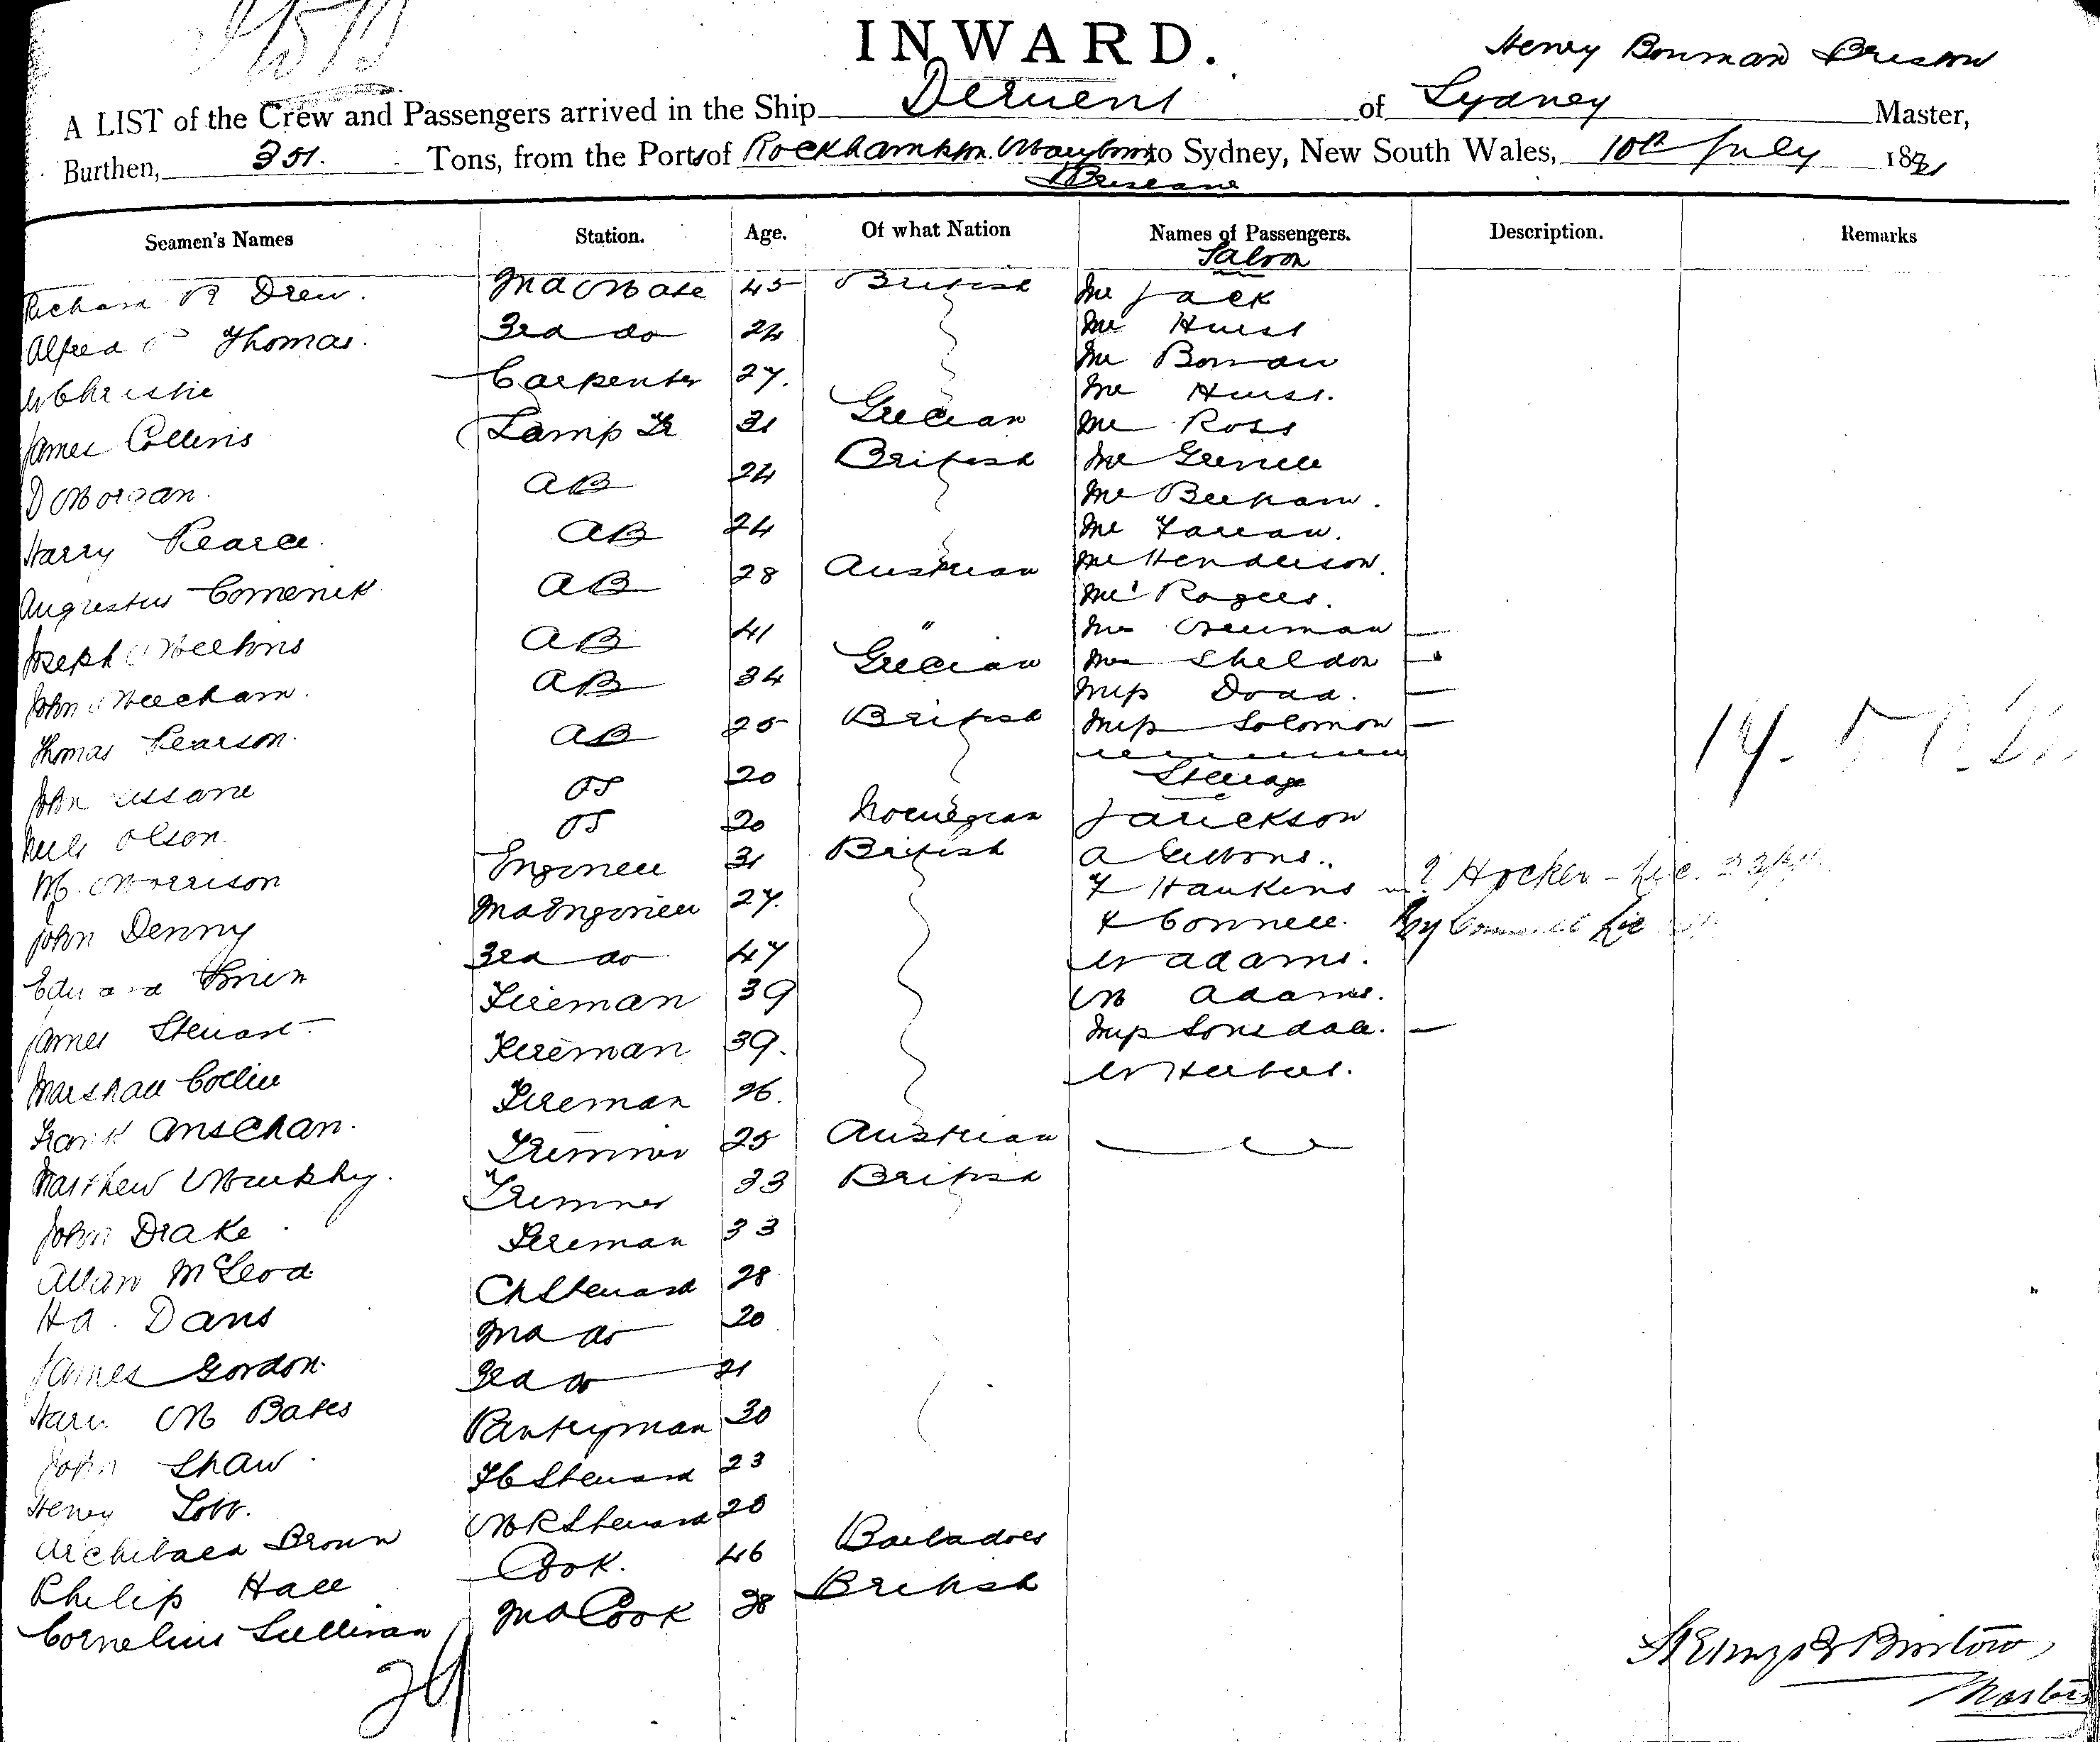 INWARD.
Henry Bowman Bristow
A LIST of the Crew and Passengers arrived in the Ship Derwent of Sydney Master,
Burthen, 351. Tons, from the Ports of Rockhampton Maryboro to Sydney, New South Wales, 10th July 1891
Brisbane
Seamen's Names Station. Age. Of what Nation Names of Passengers. Description. Remarks
Saloon
Richard R Drew. 2nd Mate 45 British Mr Jack
Alfred Thomas. 3rd do 24 Mr Hurst
W Christie Carpenter 27. Mr Bowman
Mr Hurst.
James Collins Lamp Tr 31 Grecian Mr Ross
D Morgan. AB 24 British Mr Grenell
Mr Beekam.
Harry Pearce. AB 24 Mr Farran.
Augustus Comenik AB 28 Austrian Mr Henderson.
Mr Rogers.
Joseph Meekins AB 41 " Mrs Newman
John Meecham. AB 34 Grecian Mrs Sheldon
Miss Dodd.
Thomas Pearson. AB 25 British Miss Solomon
Steerage
John OS 20
Neils Olson. OS 20 Norwegian J Erickson
M. Morrison Engineer 31 British A Gibbons.
F Hawkins ? Hocken
John Denny 2nd Engineer 27. Connell.
Edward Brien 3rd do 47 W Adams.
James Stewart Fireman 39 M Adams.
Marshall Collier Fireman 39. Miss Lonsdale.
Fireman 26. W Herbert.
Frank Anschan. Trimmer 25 Austrian
Matthew Murphy. Trimmer 33 British
John Drake Fireman 33
Allan McLeod Ch Steward 28
HA. Davis 2nd do 20
James Gordon 3rd do 21
Harry M Bates Pantryman 30
John Shaw FC Steward 23
Henry Lott. MR Steward 20
Archibald Brown
Philip Hall Cook. 46 Barbadoes
Cornelius Sullivan 2nd Cook 38 British
29
Bristow
Master